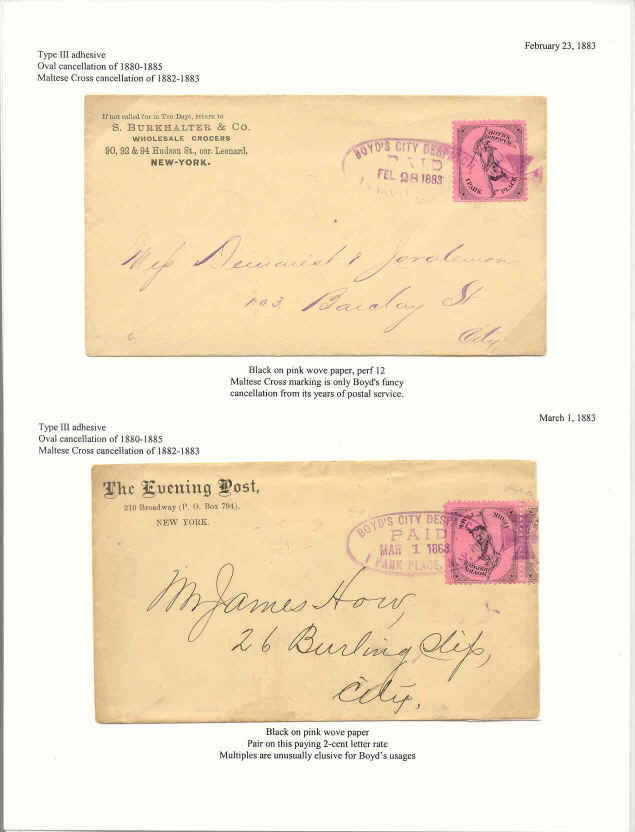 February 23, 1883
Type III adhesive
Oval cancellation of 1880-1885
Maltese Cross cancellation of 1882-1883
If not called for in Ten Days, return to
S. BURKHALTER & CO.
WHOLESALE GROCERS
90, 92 & 94 Hudson St., cor. Leonard,
NEW-YORK.
BOYD'S CITY DESPATCH
PAID
FEB 28 1883
BOYD'S
1 PARK PLACE
Demarest & Joralemon
103 Barclay St
City
Black on pink wove paper, perf 12
Maltese Cross marking is only Boyd's fancy
cancellation from its years of postal service.
March 1, 1883
Type III adhesive
Oval cancellation of 1880-1885
Maltese Cross cancellation of 1882-1883
The Evening Post,
210 Broadway (P. O. Box 794),
NEW YORK.
BOYD'S CITY DESP
PAID
MAR 1 1883
1 PARK PLACE,
Mr James How,
26 Burling Slip,
City.
Black on pink wove paper
Pair on this paying 2-cent letter rate
Multiples are unusually elusive for Boyd's usages